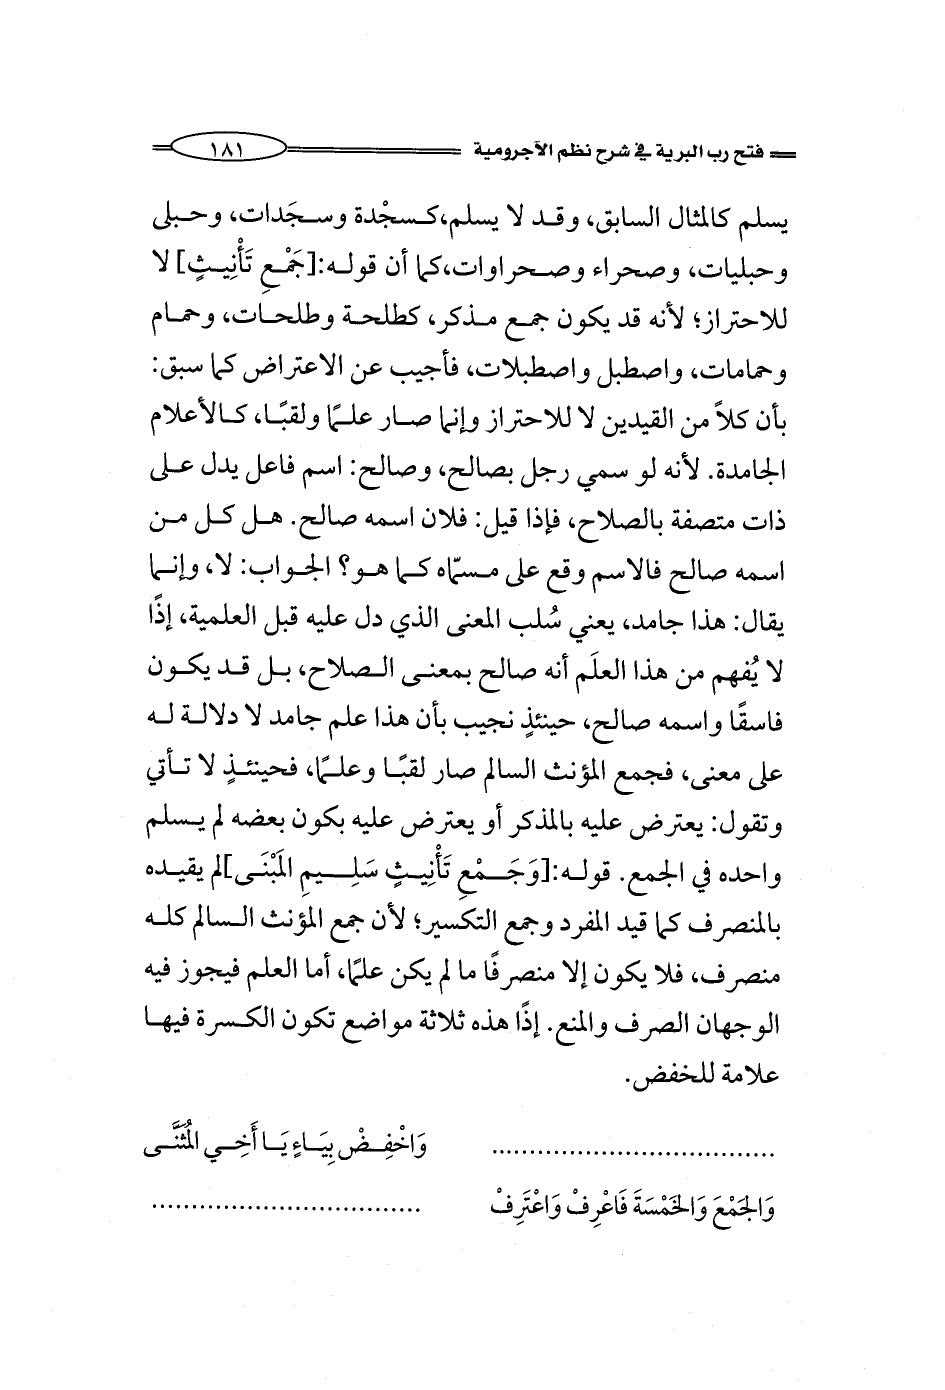 فتح رب البرية في شرح نظم الآجرومية ١٨١
يسلم كالمثال السابق، وقد لا يسلم،كسجْدة وسجَدات، وحبلى
وحبليات، وصحراء وصحراوات،كما أن قوله:[جَمْعِ تَأْنِيثٍ] لا
للاحتراز؛ لأنه قد يكون جمع مذكر، كطلحة وطلحات، وحمام
وحمامات، واصطبل واصطبلات، فأجيب عن الاعتراض كما سبق:
بأن كلاً من القيدين لا للاحتراز وإنما صار علمًا ولقبًا، كالأعلام
الجامدة. لأنه لو سمي رجل بصالح، وصالح: اسم فاعل يدل على
ذات متصفة بالصلاح، فإذا قيل: فلان اسمه صالح. هل كل من
اسمه صالح فالاسم وقع على مسمّاه كما هو؟ الجواب: لا، وإنما
يقال: هذا جامد، يعني سُلب المعنى الذي دل عليه قبل العلمية، إذًا
لا يُفهم من هذا العلَم أنه صالح بمعنى الصلاح، بل قد يكون
فاسقًا واسمه صالح، حينئذٍ نجيب بأن هذا علم جامد لا دلالة له
على معنى، فجمع المؤنث السالم صار لقبًا وعلمًا، فحينئذٍ لا تأتي
وتقول: يعترض عليه بالمذكر أو يعترض عليه بكون بعضه لم يسلم
واحده في الجمع. قوله:[وَجَمْعِ تَأْنِيثٍ سَلِيمِ المَبْنَى]لم يقيده
بالمنصرف كما قيد المفرد وجمع التكسير؛ لأن جمع المؤنث السالم كله
منصرف، فلا يكون إلا منصرفًا ما لم يكن علمًا، أما العلم فيجوز فيه
الوجهان الصرف والمنع. إذًا هذه ثلاثة مواضع تكون الكسرة فيها
علامة للخفض.
................................... وَاخْفِضْ بِيَاءٍ يَا أَخِي المُثَنَّى
وَالجَمْعَ وَالخَمْسَةَ فَاعْرِفْ وَاعْتَرِفْ .................................